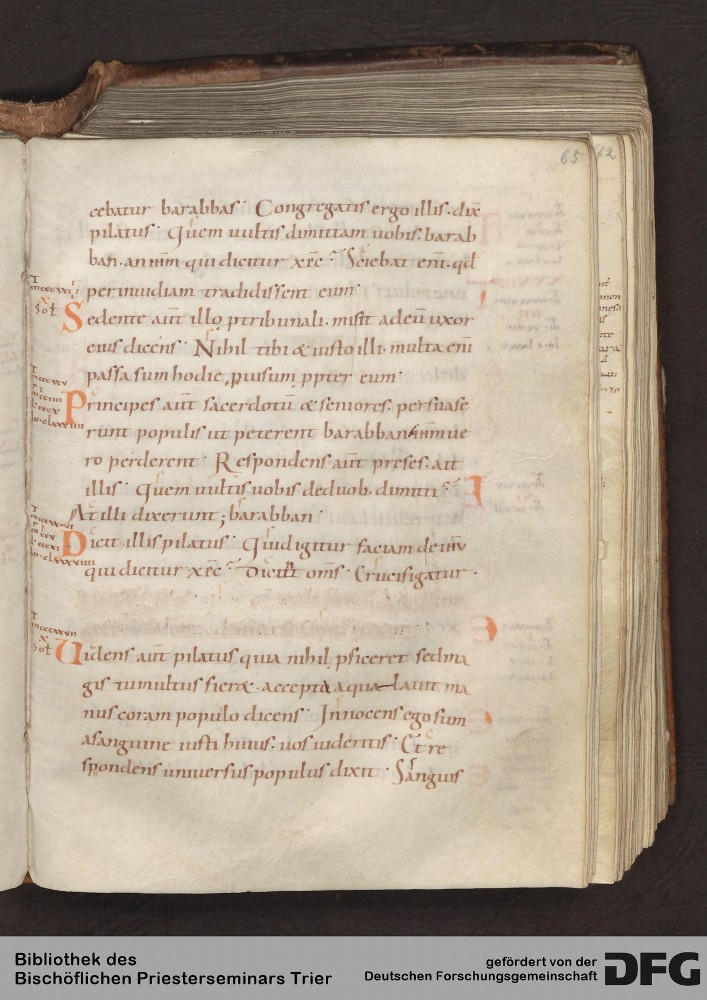 65 72
cebatur barabbas· Congregatis ergo illis· dix̄
pilatus· Quem uultis dimittam uobis· barab
ban· an iħm qui dicitur xp̄c? Sciebat eni̅· qđ
per inuidiam tradidissent eum·
sol̄
Sedente aūt illo p tribunali· misit ad eū uxor
eius dicens· Nihil tibi & iusto illi· multa eni̅
passa sum hodie, p uisum ppter eum·
Principes aūt sacerdotū & seniores· persuase
runt populis ut peterent barabban iħm ue
ro perderent· Respondens aūt preses· ait
illis· Quem uultis uobis de duob· dimitti?
At illi dixerunt; barabban·
Dicit illis pilatus· Quid igitur faciam de iħu
qui dicitur xp̄c? Dicūt om̄s· Crucifigatur·
sol̄
Uidens aūt pilatus quia nihil pficeret sed ma
gis tumultus fier&· accepta aqua lauit ma
nus coram populo dicens· Innocens ego sum
a sanguine iusti huius· uos uideritis· Et re
spondens uniuersus populus dixit· Sanguis
Bibliothek des
Bischöflichen Priesterseminars Trier
gefördert von der
Deutschen Forschungsgemeinschaft
DFG